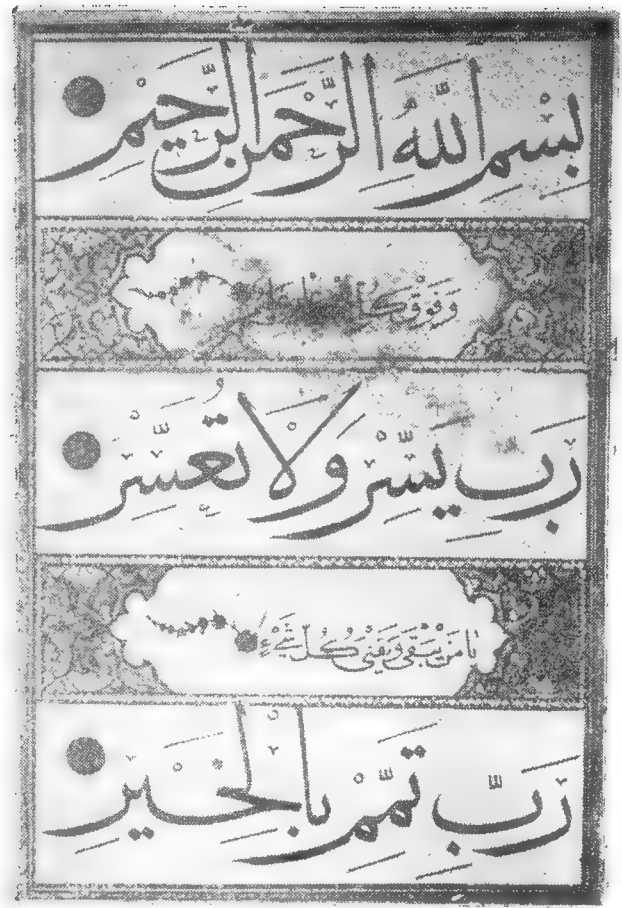 بِسْمِ اللَّهِ الرَّحْمٰنِ الرَّحِيْمِ
وَفَوْقَ كُلِّ
رَبِّ يَسِّرْ وَلَا تُعَسِّرْ
يَا مَنْ يَبْقَى وَيَفْنَى كُلُّ شَيْءٍ
رَبِّ تَمِّمْ بِالْخَيْرِ